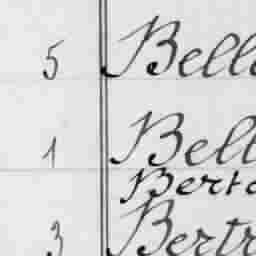 5 Bell
1 Bell
Berto
3 Bertr